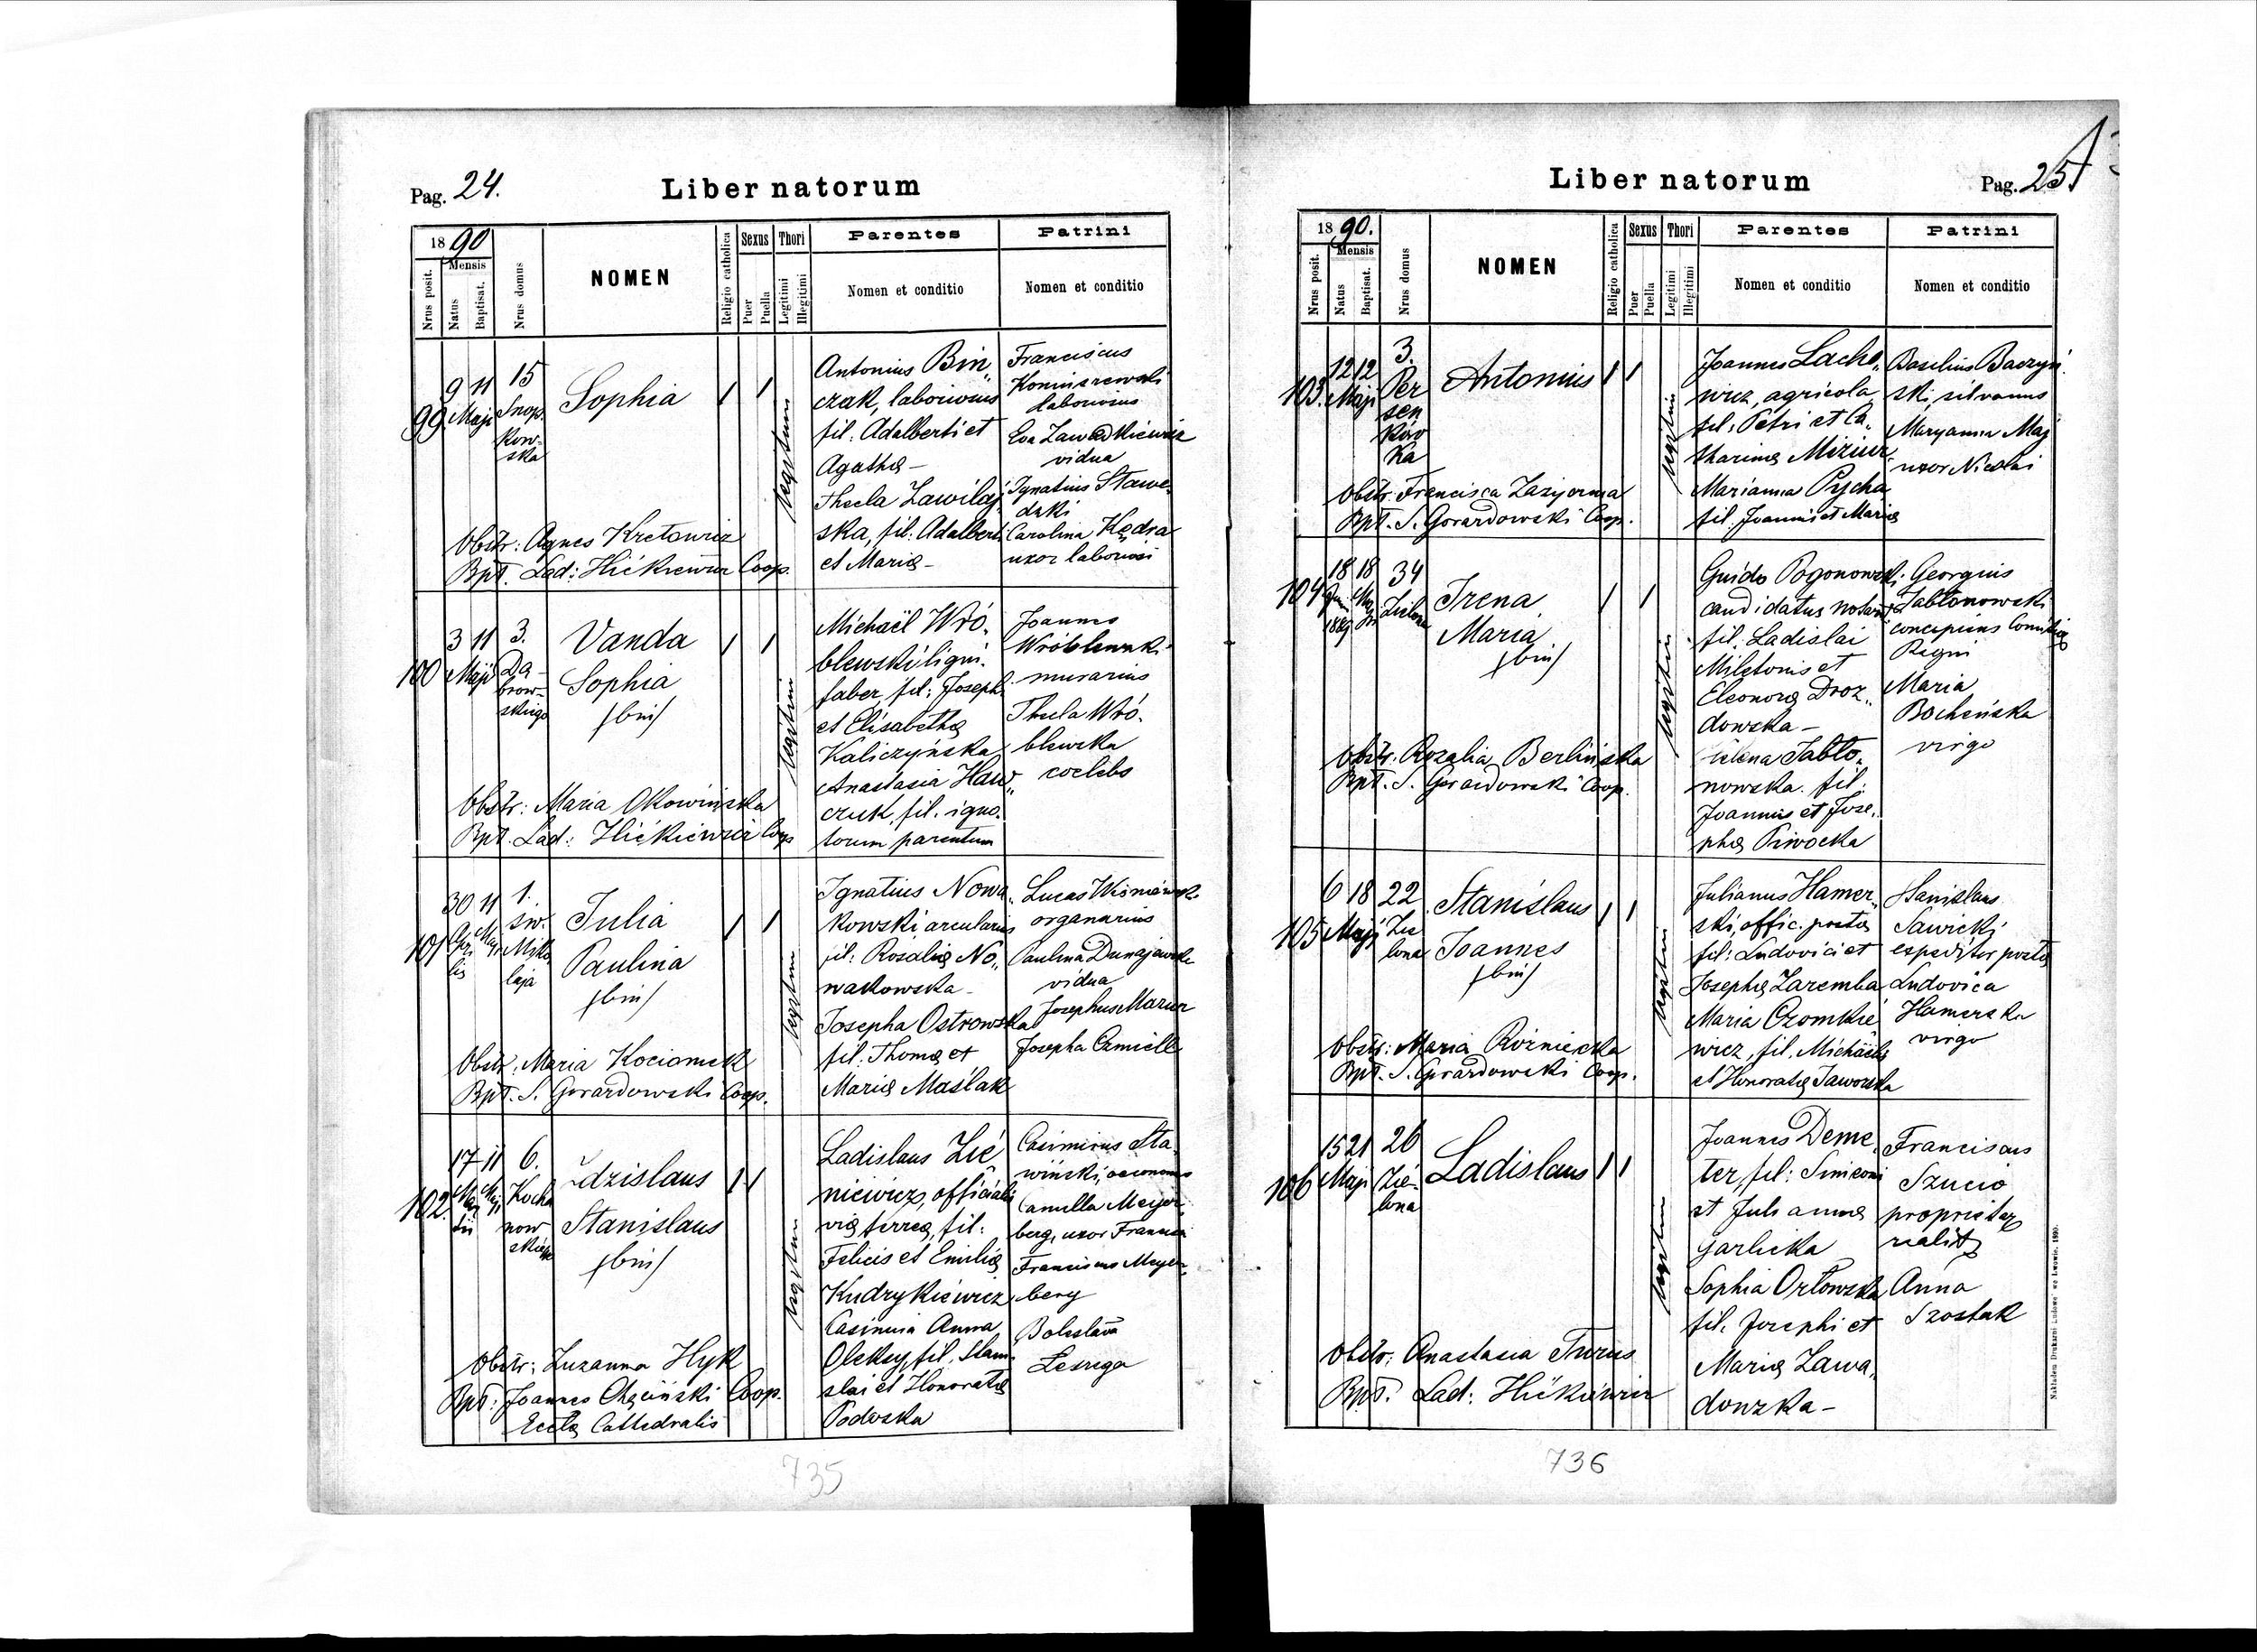 Pag. 24.
Liber natorum
1890
Mensis
Nrus posit.
Natus
Baptisat.
Nrus domus
NOMEN
Religio catholica
Sexus
Puer
Puella
Thori
Legitimi
Illegitimi
Parentes
Nomen et conditio
Patrini
Nomen et conditio
99
9 11
Maji
15
Snop
kow-
ska
Sophia
Antonius Bin„
czak, laboriosus
fil: Adalberti et
Agathę –
Thecla Zawilaj
ska, fil. Adalberti
et Marię –
Franciscus
laboriosus
Eva Zawadkiewicz
vidua
Ignatius Stawe-
Carolina Kędra
uxor laboriosi
Obstr: Agnes Kretowicz
Bpt. Lad: Hićkiewicz Coop.
100
3 11
Maji
3.
Dą-
brow-
skiego
Vanda
Sophia
/bin/
Michaël Wró-
blewski ligni-
faber, fil: Josephi
et Elisabethę
Kaliczyńska
Anastasia Haw„
czuk, fil. igno-
torum parentum
Joannes
Wróblewski
murarius
Thecla Wró-
blewska
coelebs
Obstr: Maria Okowińska
Bpt. Lad: Hićkiewicz Coop
101
30 11
1.
św.
Miko
łaja
Julia
Paulina
/bin/
Ignatius Nowa„
kowski arcularius
fil: Rosalię No„
wakowska –
Josepha Ostrowska
fil. Thomę et
Marię Maślak
Lucas Wiśniewski
organarius
Paulina Dunajewska
vidua
Josephus Mazur
Josepha
Obstr. Maria Kociomek
Bpt. S. Gorardowski Coop.
102
17 11
6.
Kocha
now
skiego
Zdzislaus
Stanislaus
/bin/
Ladislaus Zie
niewicz, officialis
vię ferreę, fil:
Felicis et Emilię
Kudrykiewicz
Casimira Anna
Oleksy, fil. Stani
slai et Honoratę
Podoska
Casimirus Sta
wiński, oeconomus
Camilla Meyer
berg, uxor Francisci
Franciscus Meyer
berg
Boleslava
Zesuga
Obstr: Zuzanna Hyk
Bpt: Joannes Chęciński Coop.
Eccłę Cathedralis
735
Liber natorum
Pag. 25
1890.
Mensis
Nrus posit.
Natus
Baptisat.
Nrus domus
NOMEN
Religio catholica
Sexus
Puer
Puella
Thori
Legitimi
Illegitimi
Parentes
Nomen et conditio
Patrini
Nomen et conditio
103
12 12
Maji
3.
Per
sen
ków
ka
Antonius
Joannes Lacho„
wicz, agricola
fil: Petri et Ca„
tharinę Miziur
Marianna Pycha
fil. Joannis et Marię
Basilius Baczyń
ski, silvanus
Maryanna Maj
uxor Nicolai
Obstr. Francisca Zazyorna
Bpt. S. Gorardowski Coop.
104
18 18
1889
34
Zielona
Irena
Maria
/bin/
Guido Pogonowski
candidatus notari
fil. Ladislai
Miletonis et
Eleonorę Droz„
dowska –
Helena Jabło„
nowska. fil:
Joannis et Jose„
phę Piwocka
Georgius
Jabłonowski
concipiens Comitię
Regni
Maria
Bocheńska
virgo
Obstr. Rozalia Berlińska
Bpt. S. Gorardowski Coop.
105
6 18
Maji
22
Zie
lona
Stanislaus
Joannes
/bin/
Julianus Hamer„
ski, offic. postę
fil: Ludovici et
Josephę Zaremba
Maria Czomkie
wicz, fil. Michaëlis
et Honoratę Jaworska
Stanislaus
Sawicki
expeditor postę
Ludovica
Hamerska
virgo
Obstr: Maria Rożniecka
Bpt. S. Gorardowski Coop.
106
15 21
Maji
26
Zie-
lona
Ladislaus
Joannes Deme
ter, fil: Simeoni
et Juliannę
Garlicka
Sophia Orłowska
fil. Josephi et
Marię Zawa„
dowska –
Franciscus
Szucio
proprietar
realit
Anna
Szostak
Obstr: Anastasia Turus
Bpt. Lad: Hićkiewicz
Nakładem Drukarni Ludowej we Lwowie. 1890.
736